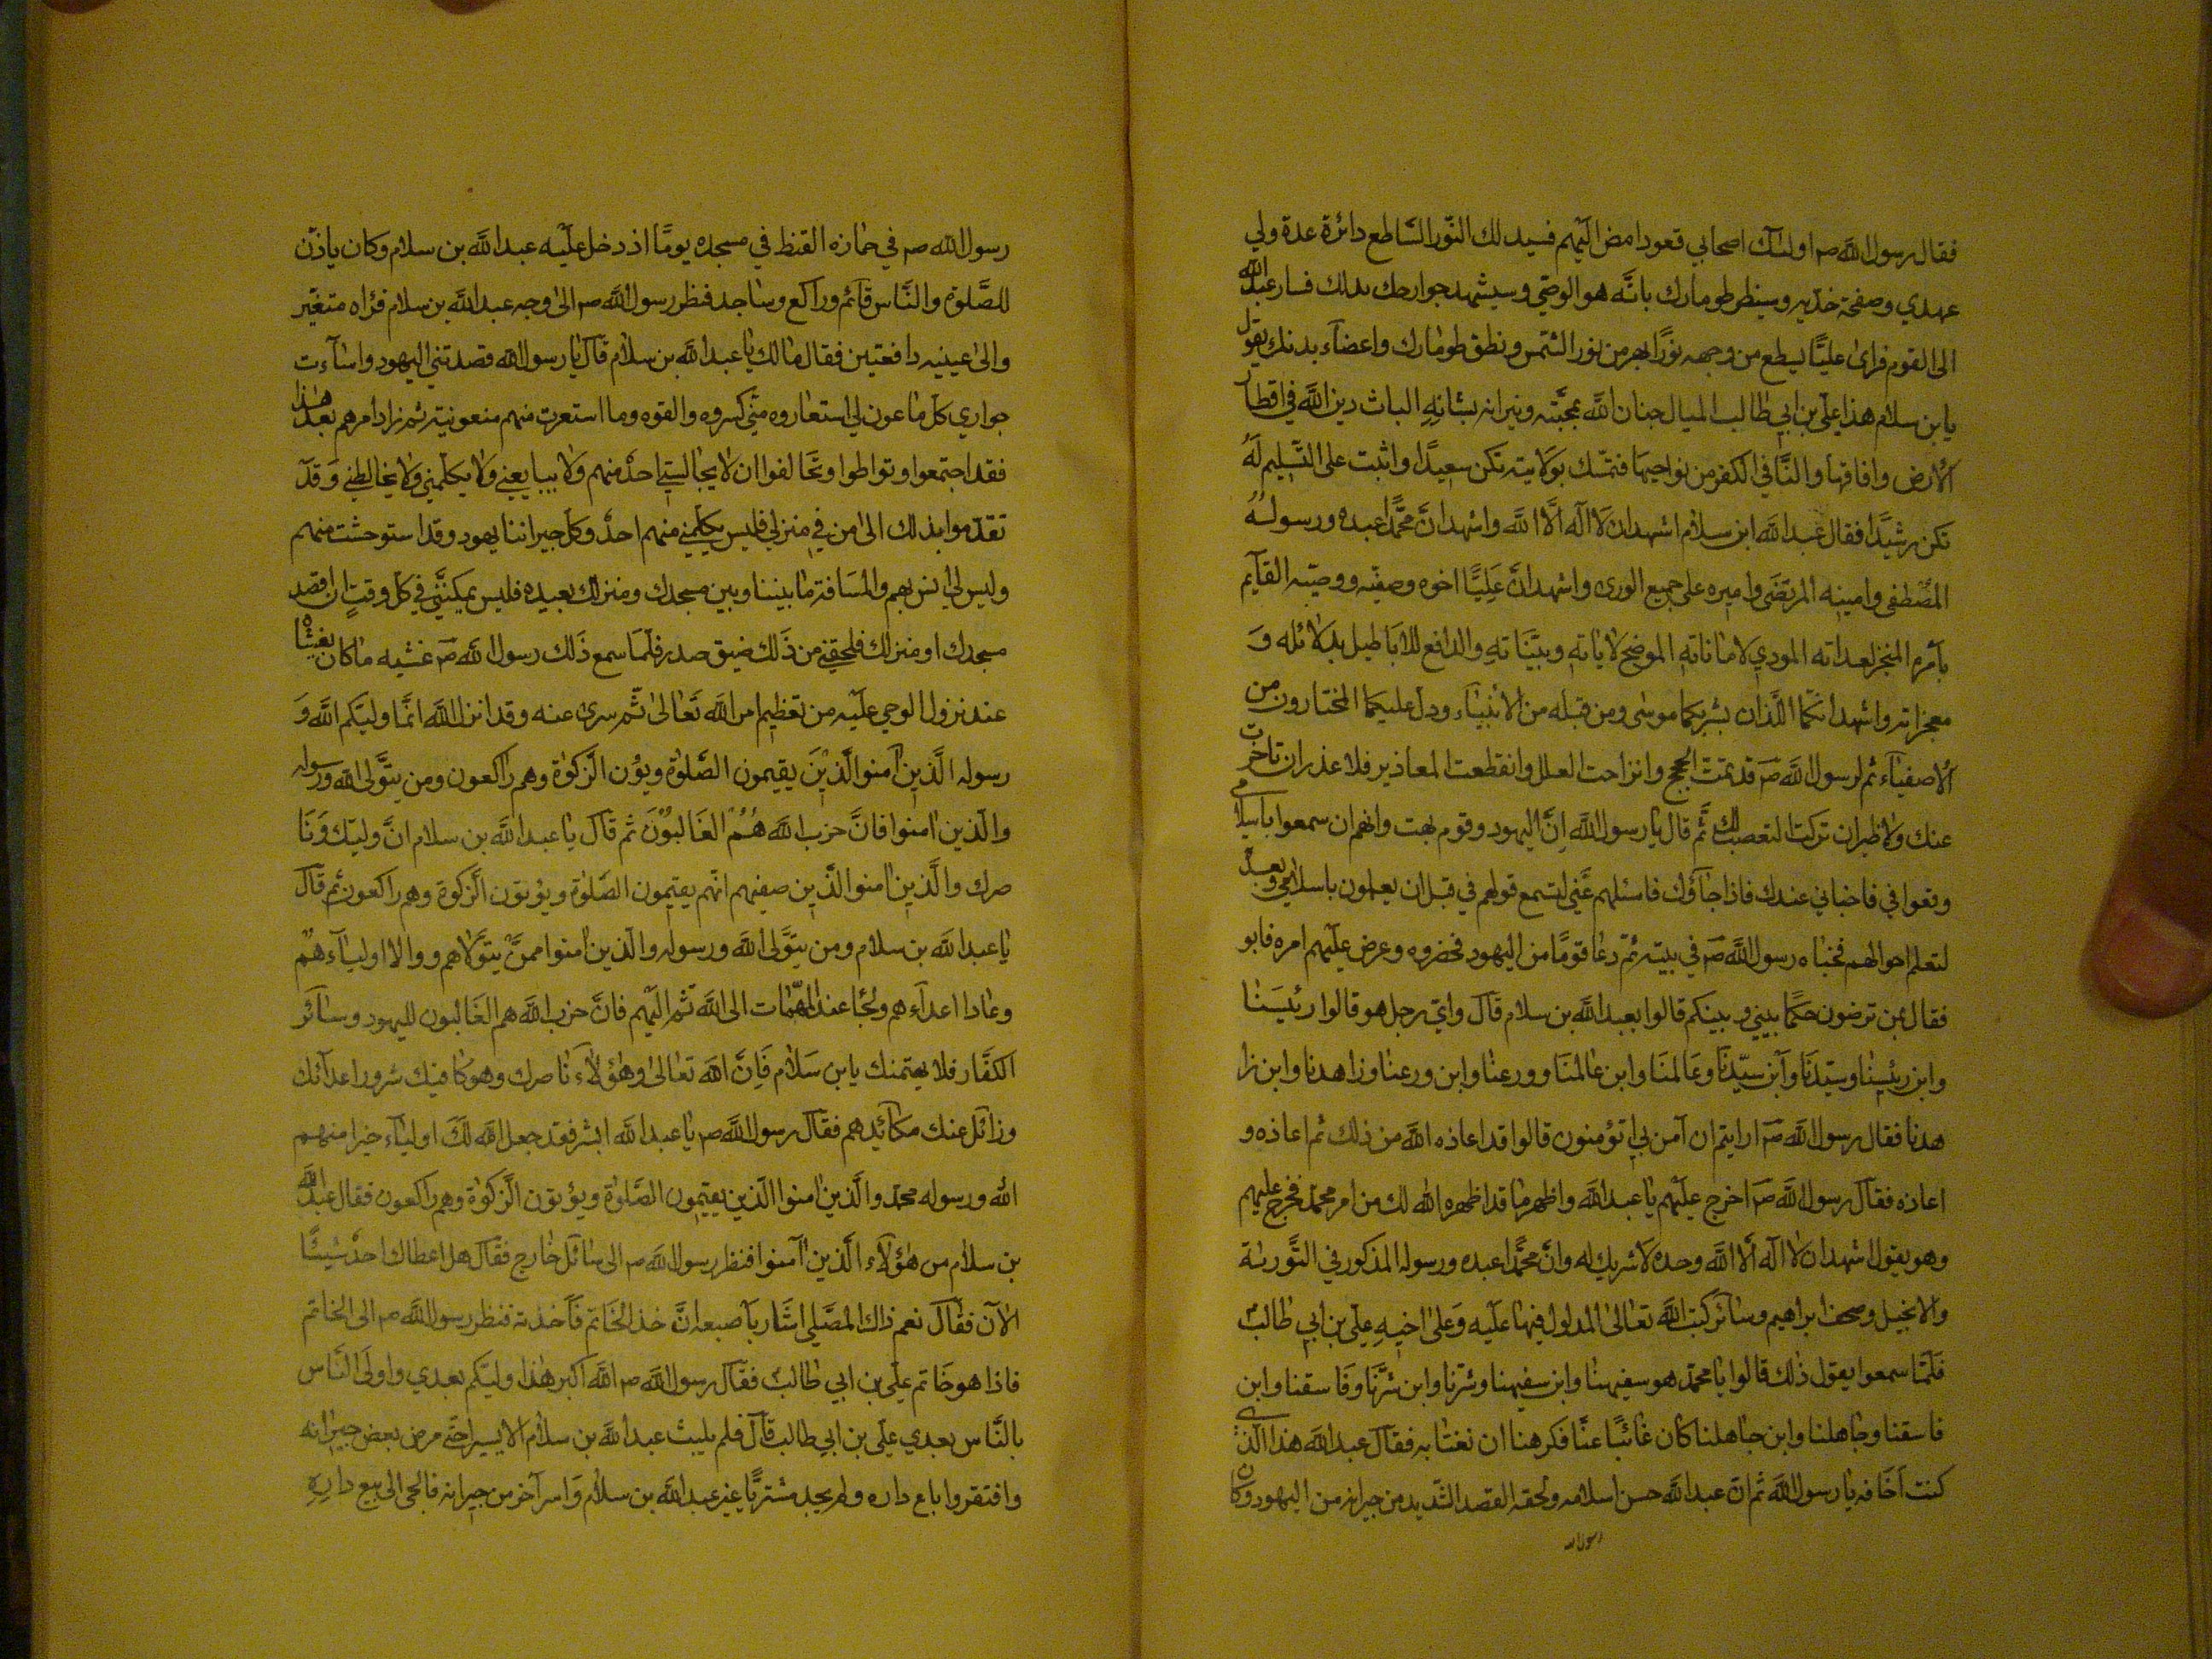 فقال رسول الله صم اولئك اصحابي قعود امض اليهم فسيدلك النور الساطع دائرة عدة ولي
عهدي وصفحة خديه وسينطق طومارك بانه هو الوصي وسيشهد جوارحك بذلك فسار عبد الله
الى القوم فراى عليا ليسطع من وجهه نورا بهر من نور الشمس ونطق طومارك واعضاء بدنك يقول
يابن سلام هذا علي بن ابي طالب الميال جنان الله بمحبته ونيرانه بشانه الباث دين الله في اقطار
الارض وافاقها والنافي الكفر من نواحيها فتمسك بولايته تكن سعيدا واثبت على التسليم له
تكن رشيدا فقال عبد الله ابن سلام اشهد ان لا اله الا الله واشهد ان محمدا عبده ورسوله
المصطفى وامينه المرتضى واميره على جميع الورى واشهد ان عليا اخوه وصفيه ووصيه القايم
بامره المنجز لعداته المودي لاماناته الموضح لاياته وبيناته والدافع للاباطيل بدلائله و
معجزاته واشهد انكما اللذان بشر بكما موسى ومن قبله من الانبياء ودل عليكما المختارون من
الاصفياء ثم لرسول الله صم قد تمت الحجج وانزاحت العلل وانقطعت المعاذير فلا عذر ان تاخرت
عنك ولا خير ان تركت التعصب لك ثم قال يا رسول الله ان اليهود وقوم بهت وانهم ان سمعوا باسلامي
وقعوا في فاخباني عندك فاذا جاؤك فاسئلهم عني لتسمع قولهم في قبل ان يعلمون باسلامي وبعد
لتعلم احوالهم فخباه رسول الله صم في بيته ثم دعا قوما من اليهود فحضروه وعرض عليهم امره فابو
فقال بمن ترضون حكما بيني وبينكم قالوا بعبد الله بن سلام قال واي رجل هو قالوا رئيسنا
وابن رئيسنا وسيدنا وابن سيدنا وعالمنا وابن عالمنا وورعنا وابن ورعنا وزاهدنا وابن زا
هدنا فقال رسول الله صم ارايتم ان آمن بي اتؤمنون قالوا قد اعاذه الله من ذلك ثم اعاذه و
اعاذه فقال رسول الله صم اخرج عليهم يا عبد الله واظهر ما قد اظهره الله لك من امر محمد فخرج عليهم
وهو يقول اشهد ان لا اله الا الله وحده لا شريك له وان محمدا عبده ورسوله المذكور في التورية
والانجيل وصحف ابراهيم وسائر كتب الله تعالى المدلول فيها عليه وعلى اخيه علي بن ابي طالب
فلما سمعوا يقول ذلك قالوا يا محمد هو سفيهنا وابن سفيهنا وشرنا وابن شرنا وفاسقنا وابن
فاسقنا وجاهلنا وابن جاهلنا كان غائبا عنا فكرهنا ان نغتابه فقال عبد الله هذا الذي
كنت اخافه يا رسول الله ثم ان عبد الله حسن اسلامه ولحقه القصد الشديد من جيرانه من اليهود وكان
رسول الله
رسول الله صم في حمازه القنظ في مسجده يوما اذ دخل عليه عبد الله بن سلام وكان ياذن
للصلوة والناس قائم وراكع وساجد فنظر رسول الله صم الى وجه عبد الله بن سلام فراه متغير
والى عينيه دامعتين فقال ما لك يا عبد الله بن سلام قال يا رسول الله قصدتني اليهود واساءت
جواري كل ماعون لي استعاروه مني كسروه والقوه وما استعرت منهم منعونيه ثم زاد امرهم بعد هذا
فقد اجتمعوا وتواطوا وتحالفوا ان لا يجالسني احد منهم ولا يبايعني ولا يكلمني ولا يخالطني وقد
تقدموا بذلك الى من في منزلي فليس يكلمني منهم احد وكل جيراننا يهود وقد استوحشت منهم
وليس لي انس بهم والمسافة ما بيننا وبين مسجدك ومنزلك بعيده فليس يمكنني في كل وقت ان اقصد
مسجدك او منزلك فلحقني من ذلك ضيق صدر فلما سمع ذلك رسول الله صم غشيه ما كان يغشاه
عند نزول الوحي عليه من تعظيم امر الله تعالى ثم سرى عنه وقد انزل الله انما وليكم الله و
رسوله الذين آمنوا الذين يقيمون الصلوة ويؤن الزكوة وهم راكعون ومن يتولى الله ورسوله
والذين امنوا فان حزب الله هم الغالبون ثم قال يا عبد الله بن سلام ان وليك ونا
صرك والذين امنوا الذين صفيهم انهم يقيمون الصلوة ويؤتون الزكوة وهم راكعون ثم قال
يا عبد الله بن سلام ومن يتولى الله ورسوله والذين امنوا ممن يتولاهم ووالا اولياءهم
وعادا اعداءهم ولجا عند المهمات الى الله ثم اليهم فان حزب الله هم الغالبون لليهود وسائر
الكفار فلا يهتمنك يابن سلام فان الله تعالى وهؤلاء ناصرك وهو كافيك شرور اعدائك
وزائل عنك مكائدهم فقال رسول الله صم يا عبد الله ابشر فقد جعل الله لك اولياء خيرا منهم
الله ورسوله محمد والذين امنوا الذين يقيمون الصلوة ويؤتون الزكوة وهم راكعون فقال عبد الله
بن سلام من هؤلاء الذين آمنوا فنظر رسول الله صم الى سائل خارج فقال هل اعطاك احد شيئا
الان فقال نعم ذاك المصلي اشار باصبعه ان خذ الخاتم فاخذته فنظر رسول الله صم الى الخاتم
فاذا هو خاتم علي بن ابي طالب فقال رسول الله صم الله اكبر هذا وليكم بعدي واولى الناس
بالناس بعدي علي بن ابي طالب قال فلم يلبث عبد الله بن سلام الا يسيرا حتى مرض بعض جيرانه
وافتقر وا باع داره ولم يجد مشتريا غير عبد الله بن سلام واسر آخر من جيرانه فالجى الى بيع داره